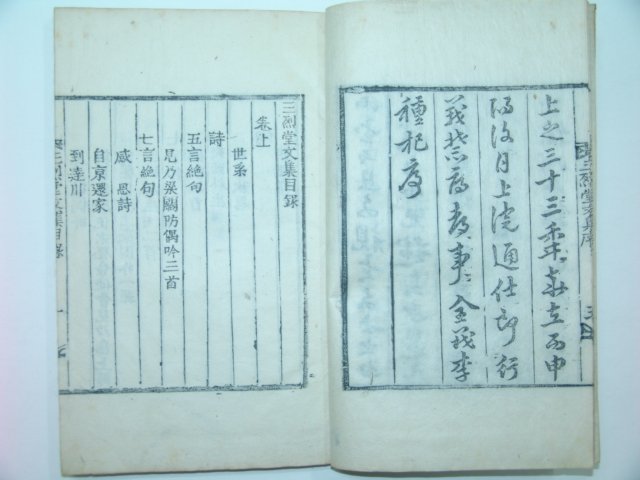 三烈堂文集序
三
上之三十三年歲在丙申
陽復月上浣通仕郞行
義禁府都事全義李
種杞序
三烈堂文集目錄
卷上
世系
詩
五言絶句
見乃梁關防偶吟三首
七言絶句
感恩詩
自京還家
到達川
三烈堂文集目錄
一